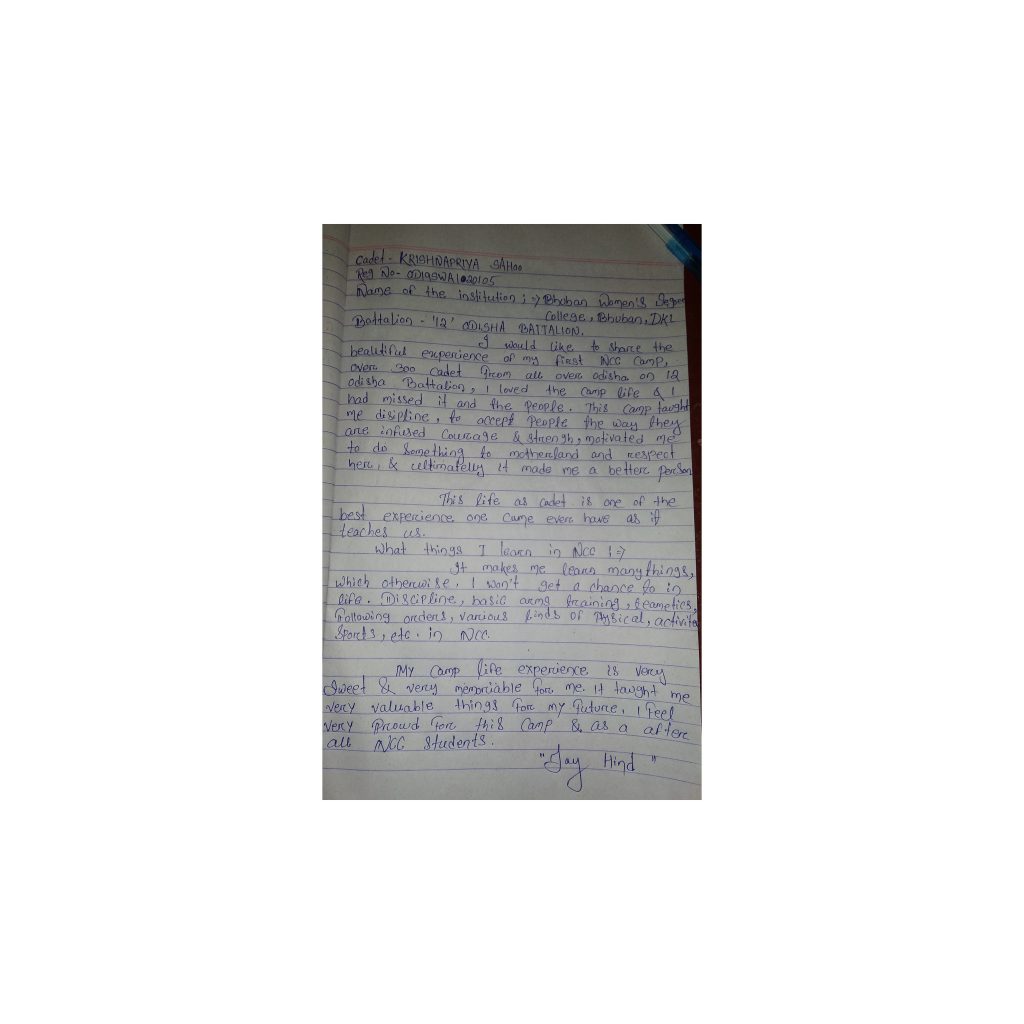 Cadet - KRISHNAPRIYA SAHOO
Reg No- OD19SWA1020105
Name of the institution ; => Bhuban Women's Degree
College, Bhuban, DKL
Battalion - '12' ODISHA BATTALION.
I would like to sharce the
beautiful experience of my first NCC Camp,
overc 300 cadet from all overc odisha on 12
odisha Battalion, I loved the camp life & I
had missed it and the People. This camp taught
me disipline, to accept People the way they
are infused Courcage & strengh, motivated me
to do Something to motherland and respect
herc, & ultimatelly it made me a betterc person
This life as cadet is one of the
best experience one came everc have as it
teaches us.
What things I learn in NCC ! =>
It makes me learn many things,
Which otherwise. I won't get a chance to in
life. Discipline, basic arms training,
Following orders, various kinds of Physical, activites
Sports, etc. in NCC.
My Camp life experience is very
Sweet & very memoriable forc me. It taught me
very valuable things Forc my Future, I Feel
very Prcowd Forc this Camp & as a afterc
all NCC Students.
"Jay Hind"